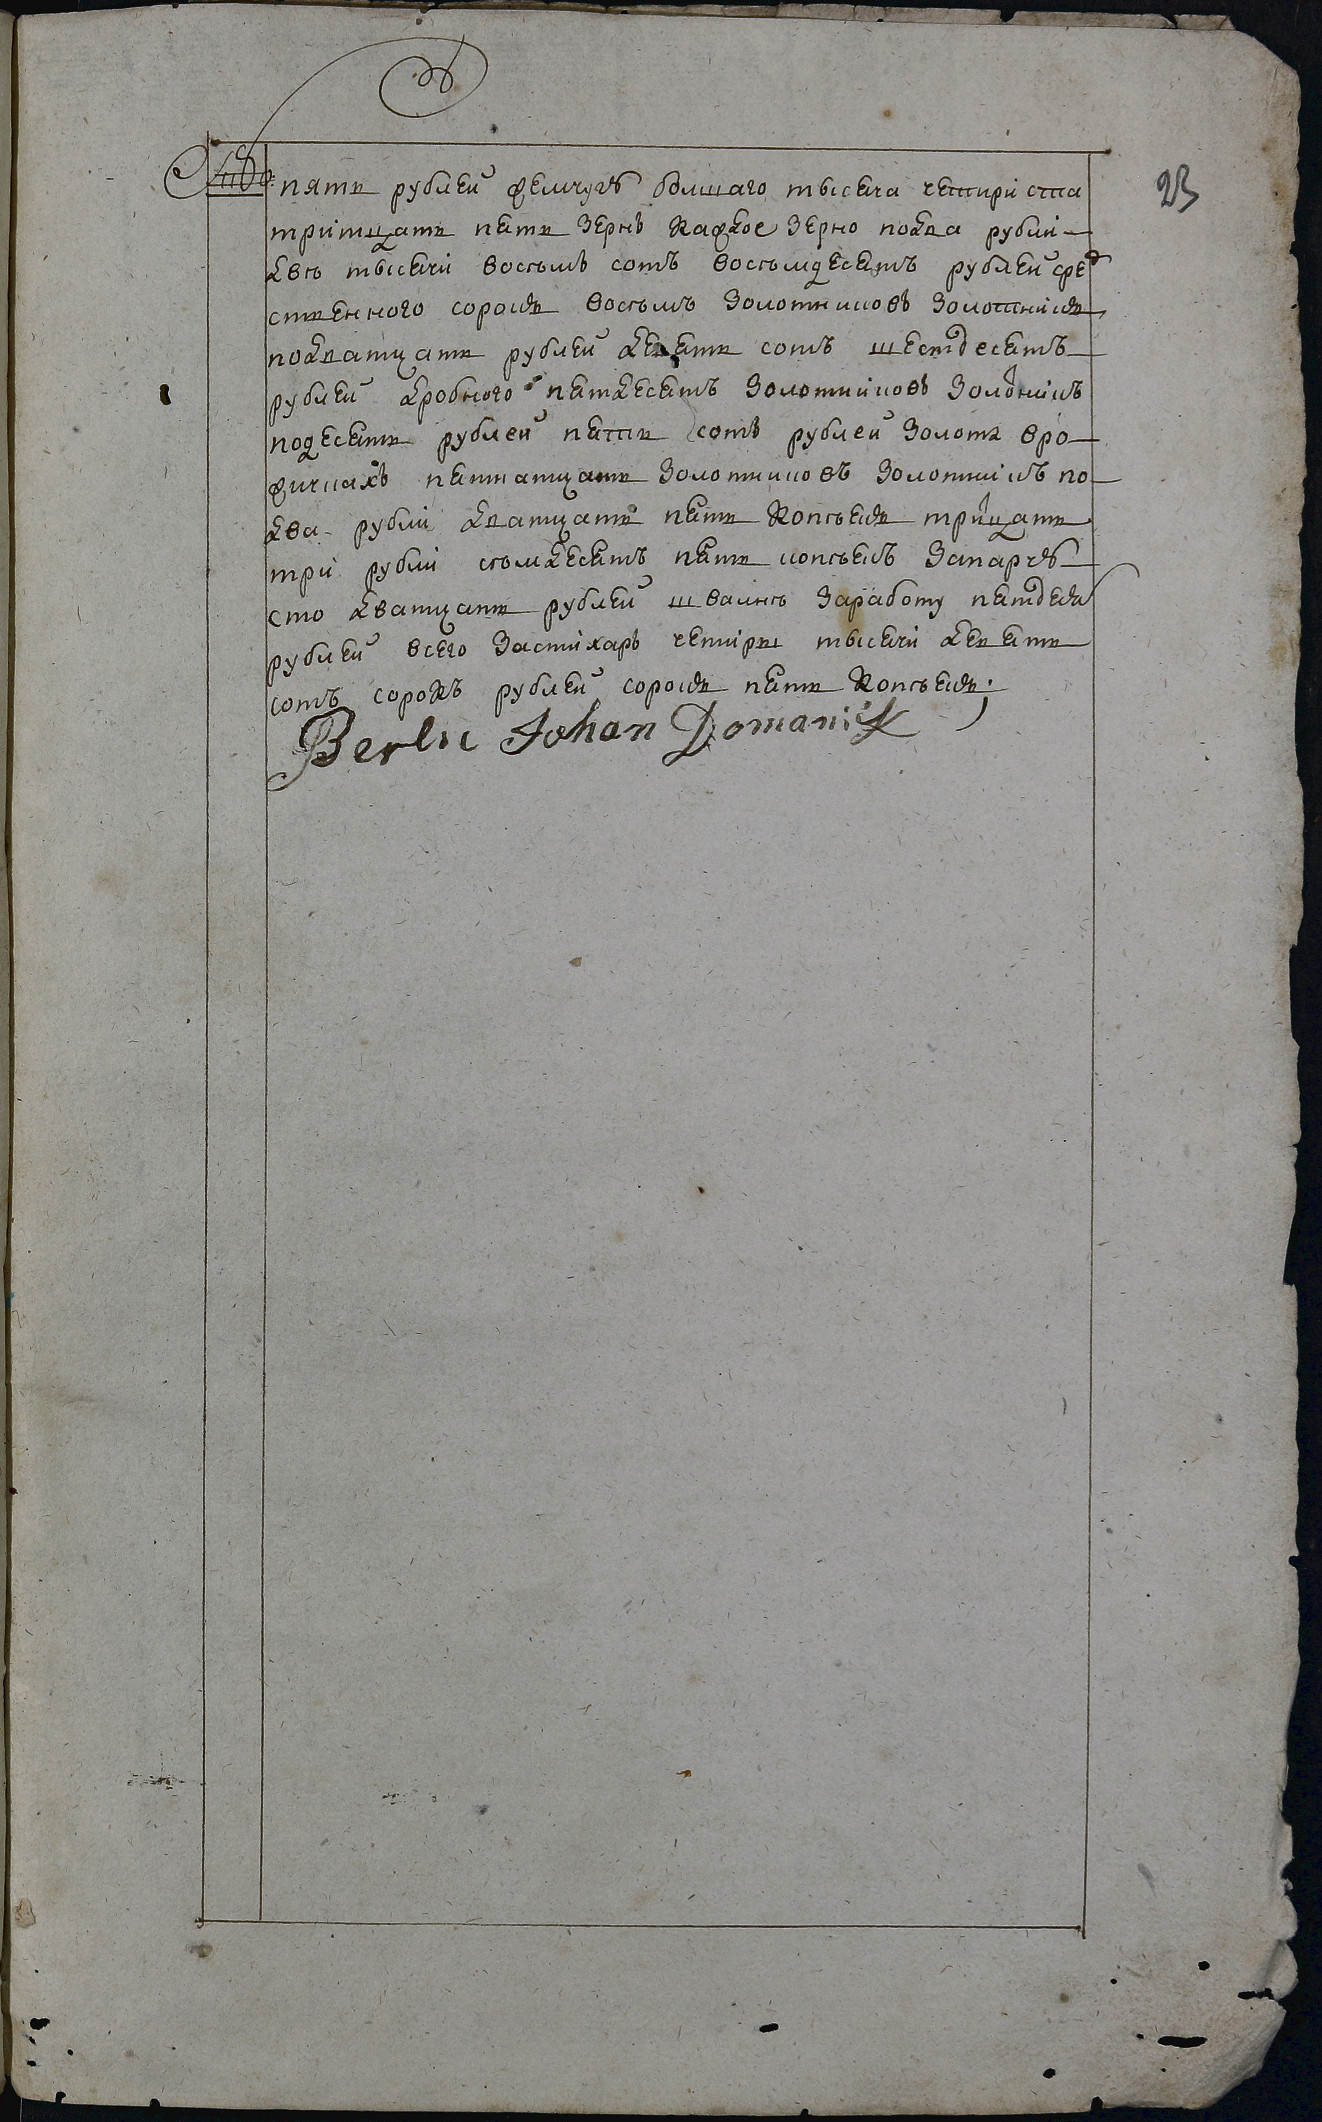 23
пять рублеи жемчугѣ болшаго тысеча четири ста
тритцать петь зернъ каждое зерно подва рубли
двѣ тысечи восѣмъ сотъ восѣмдесетъ рублеи сред
ственного сорокь восѣмъ золотниковъ золотникь
подватцать рублеи деветь сотъ шестдесетъ
рублеи дробного петдесетъ золотниковъ золотникъ
подесеть рублеи петь сотъ рублеи золота вро
жичкахъ петнатцать золотниковъ золотникъ по
два рубли дватцать петь копѣекь тритцать
три рубли сѣмдесетъ петь копѣекъ запарчѣ
сто дватцать рублеи швалнѣ заработу петдеся
рублеи всего застихаръ четиры тысечи деветь
сотъ сорокъ рублеи сорокь петь копѣекь
Johan Domanick